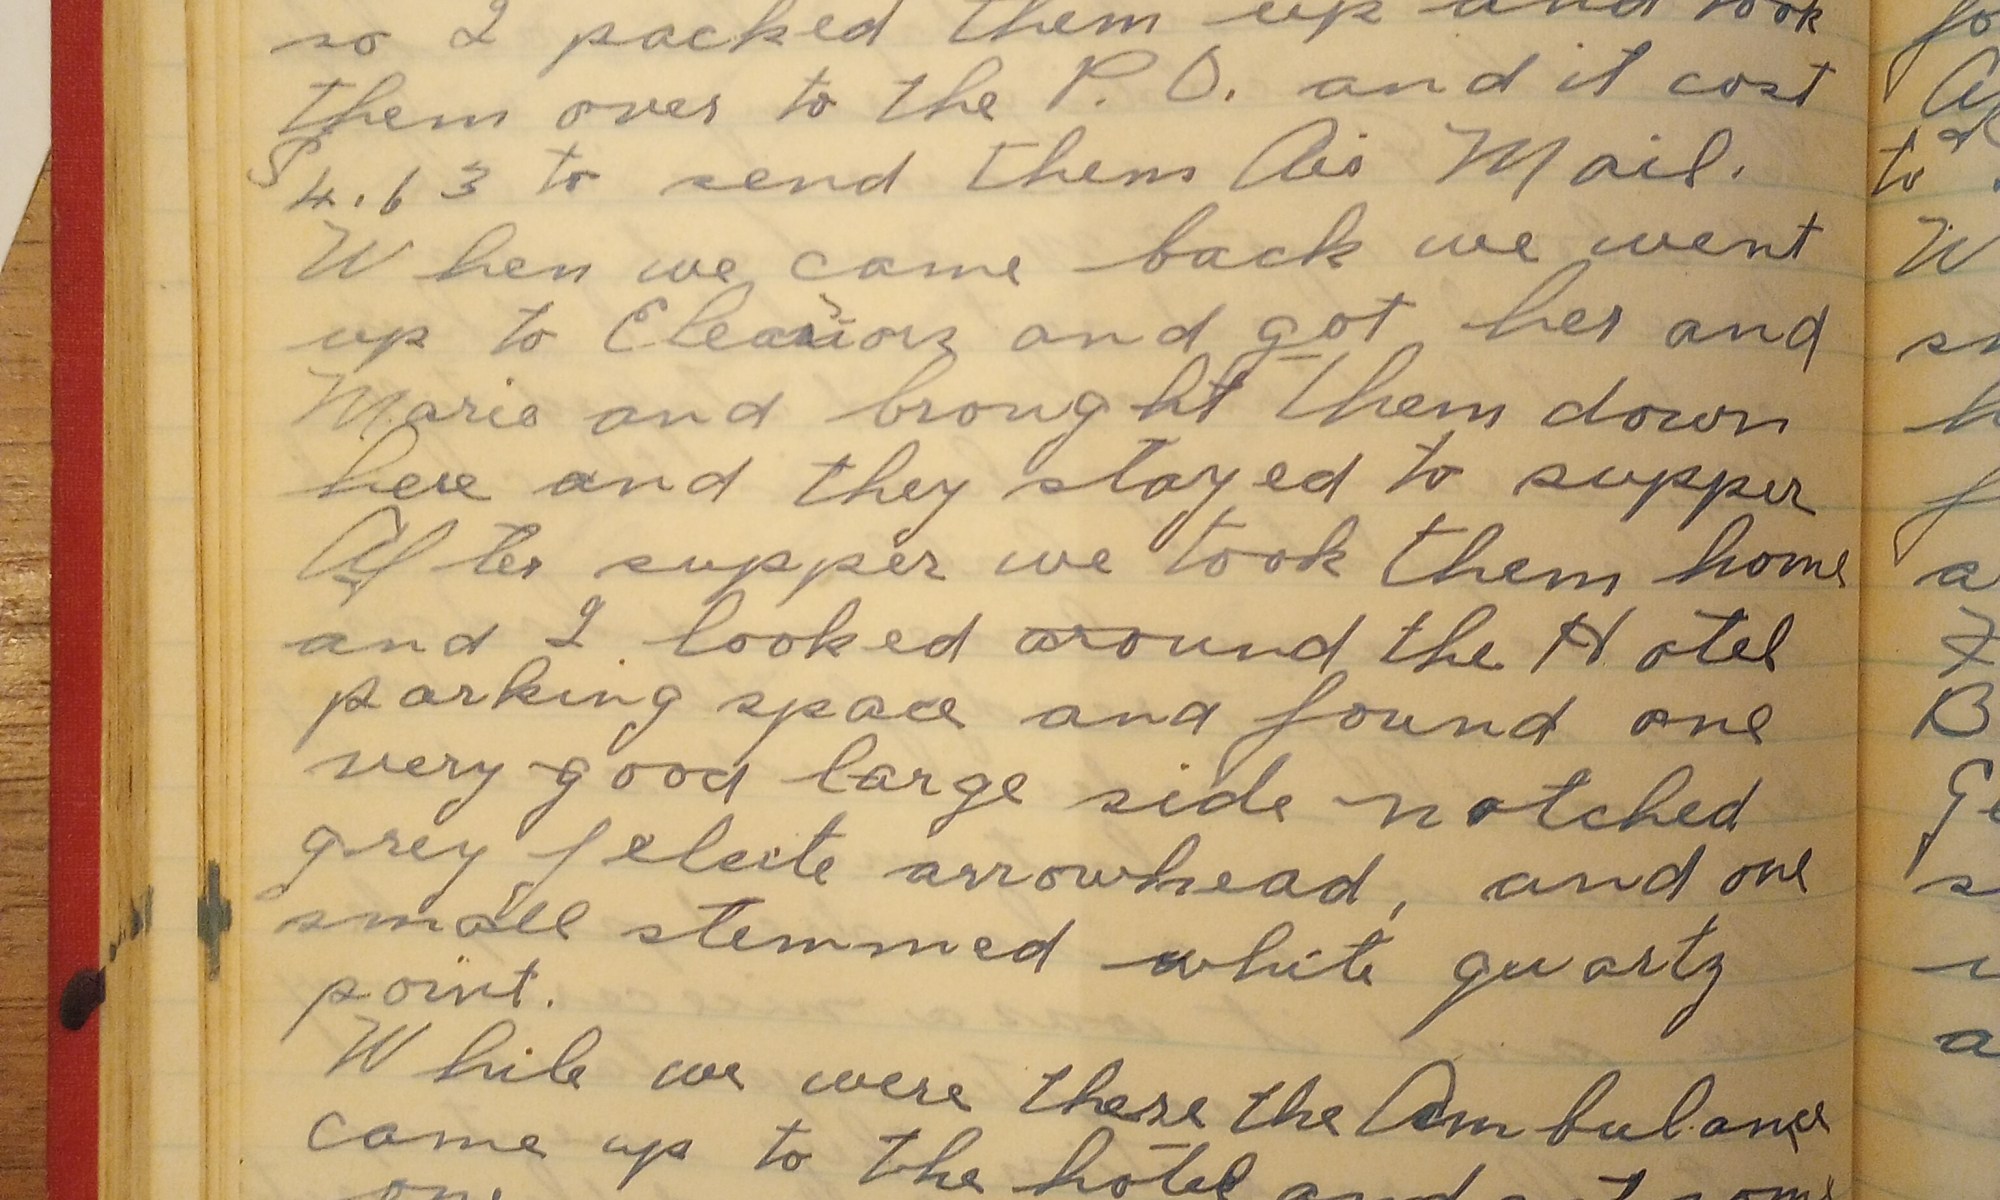 so I packed them up and took
them over to the P.O. and it cost
$4.63 to send them Air Mail.
When we came back we went
up to Eleanors and got her and
Marie and brought them down
here and they stayed to supper
After supper we took them home
and I looked around the Hotel
parking space and found one
very good large side notched
grey felsite arrowhead, and one
small stemmed white quartz
point.
While we were there the Ambulance
came up to the hotel and